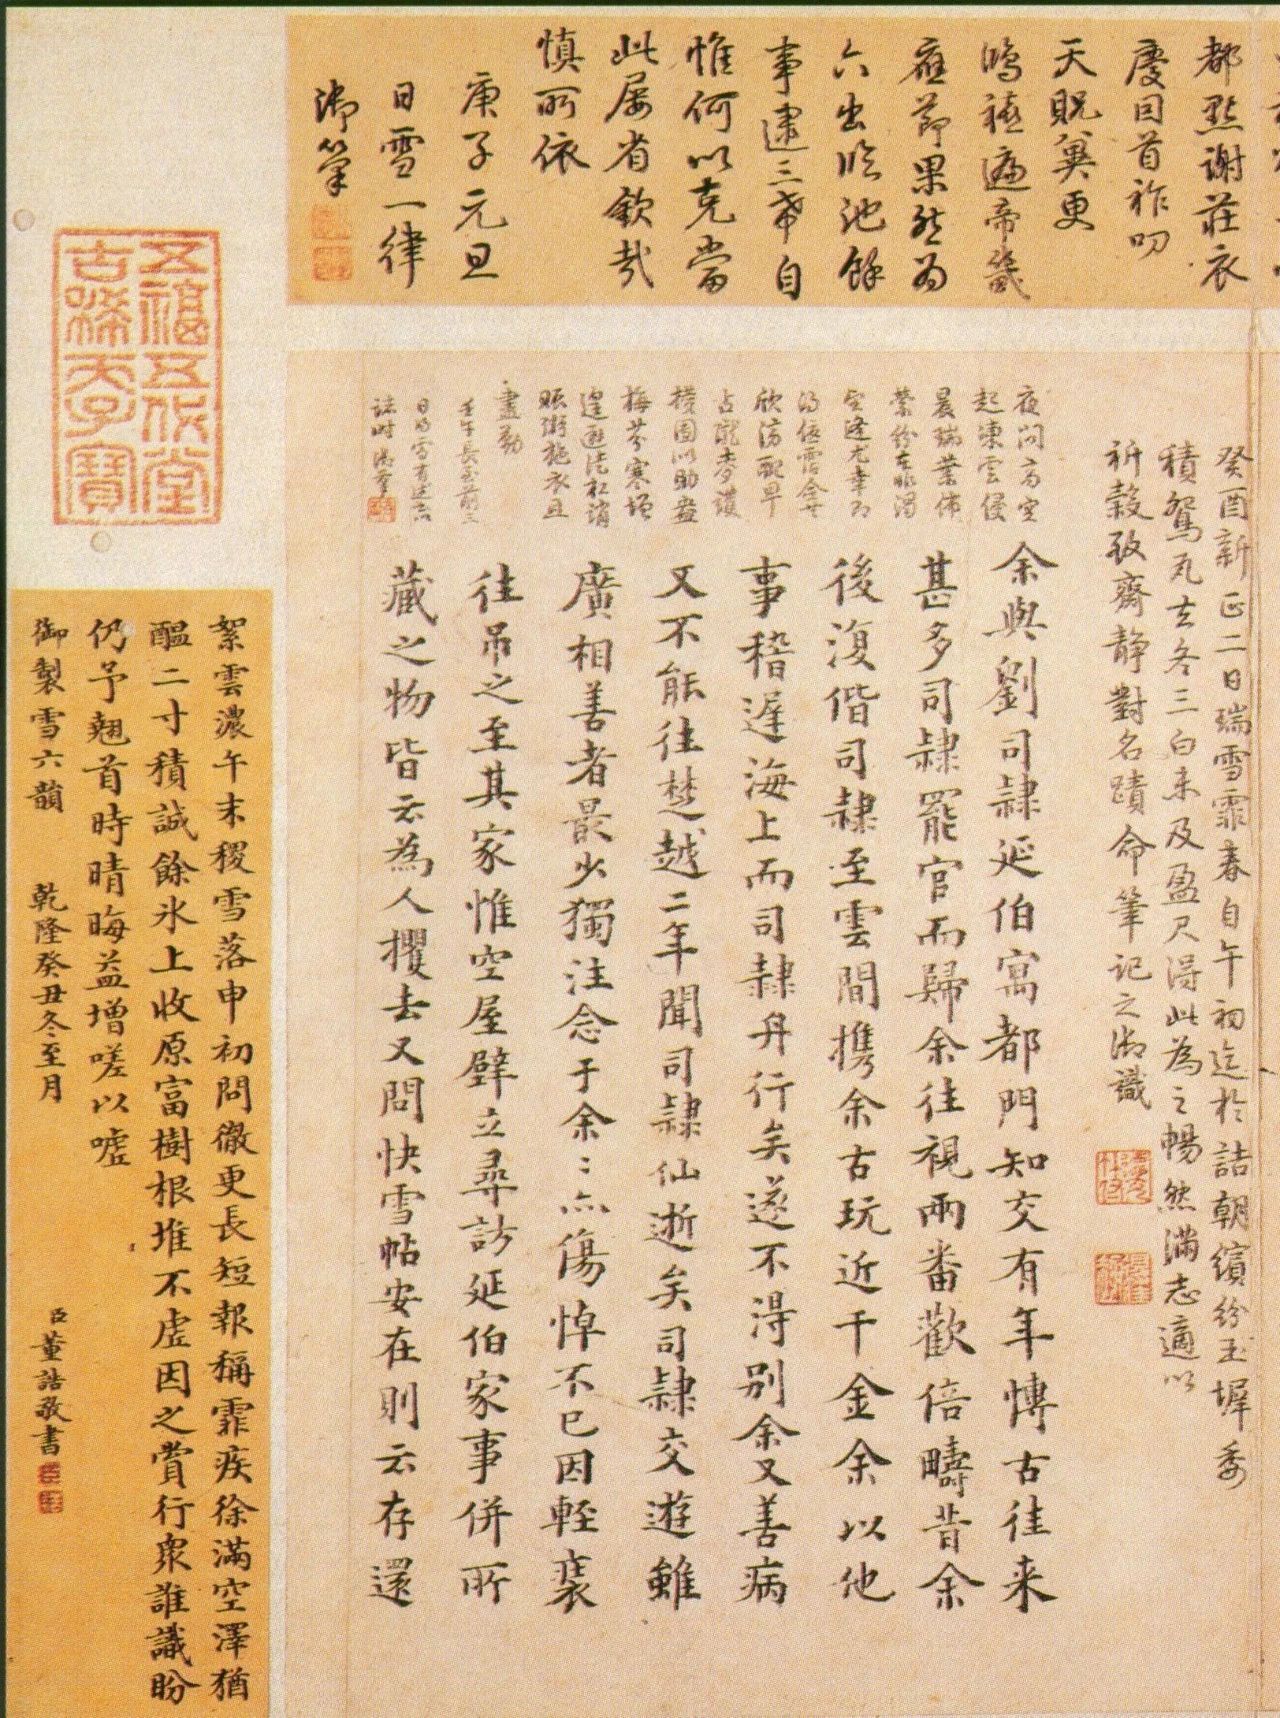 都點謝莊衣
慶因首祚叨
天貺冀更
鴻禧遍帝畿
應節果然為
六出臨池餘
事逮三希自
惟何以克當
此屢省欽哉
慎所依
庚子元旦
日雪一律
御筆
癸酉新正二日瑞雪霏春自午初迄於詰朝繽紛玉墀委
積鴛瓦去冬三白未及盈尺得此為之暢然滿志適以
祈穀致齋靜對名蹟命筆記之御識
夜問高空
起凍雲侵
晨瑞葉佈
繁紛
欣澆
占隴麥護
横圖以助盎
梅芬寒增
賑粥施衣且
盡勤
壬午長至前三
日
誌時御筆
余與劉司隸延伯寓都門知交有年博古往来
甚多司隸罷官而歸余往視兩番歡倍疇昔余
後復偕司隸至雲間携余古玩近千金余以他
事稽遲海上而司隸舟行矣遂不得別余又善病
又不能往楚越二年聞司隸仙逝矣司隸交遊雖
廣相善者最少獨注念于余〻亦傷悼不已因輕裘
往吊之至其家惟空屋壁立尋訪延伯家事併所
藏之物皆云為人攫去又問快雪帖安在則云存還
五福五代堂
古稀天子寶
絮雲濃午末稷雪落申初問徹更長短報稱霏疾徐滿空澤猶
醖二寸積誠餘氷上收原富樹根堆不虛因之賞行衆誰識盼
仍予翹首時晴晦益增嗟以噓
御製雪六韻 乾隆癸丑冬至月 臣董誥敬書